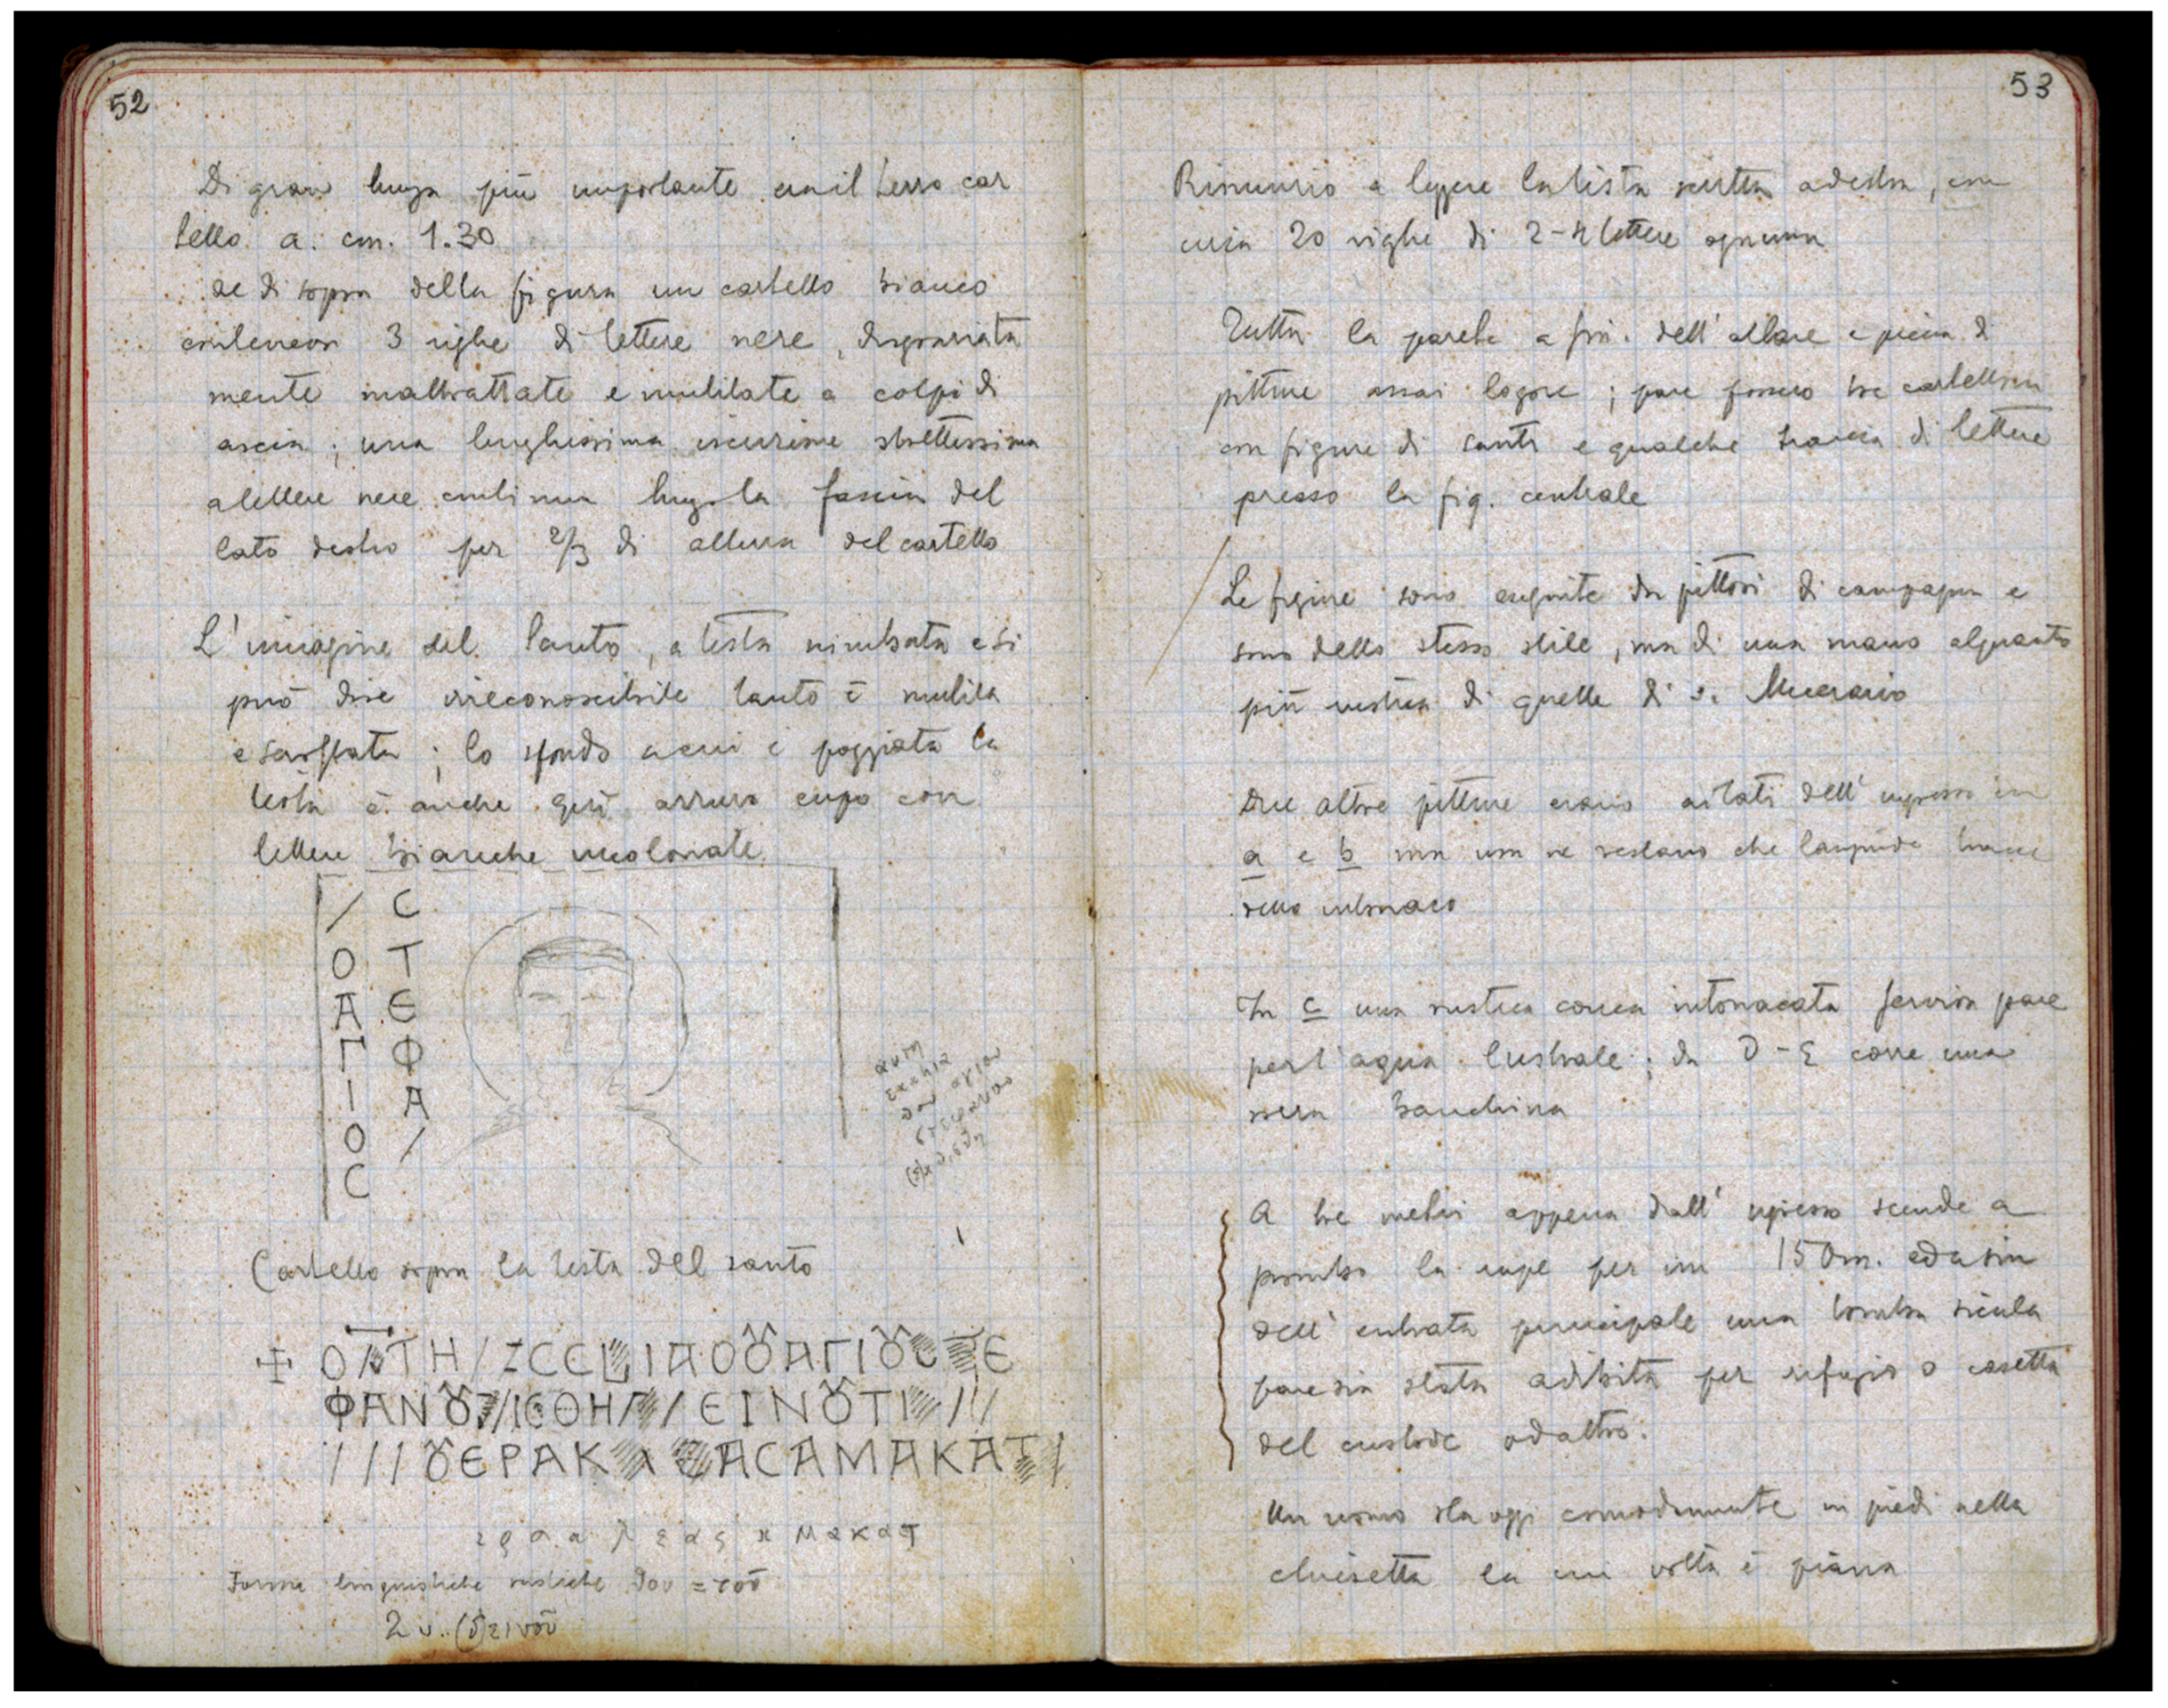 52
Di gran lunga più importante era il terzo car
tello a. cm. 1.30
al di sopra della figura un cartello bianco
conteneva 3 righe di lettere nere, disgraziata
mente maltrattate e mutilate a colpi di
ascia; una lunghissima iscrizione strettissima
a lettere nere continua lungo la fascia del
lato destro per 2/3 di altezza del cartello
L'imagine del Santo, a testa nimbata e si
può dire irreconoscibile tanto è mutila
e sarpata; lo sfondo a cui è poggiata la
testa è anche quì azzurro cupo con
lettere bianche incolonate
/ C
O T
A Є
Γ Φ
I A
O /
C
αυτη
εκληα
δου αγιου
στεφανου
Cartello sopra la testa del santo
ΦΑΝȢ // ΙCΘΗ // ЄΙΝȢΤΙ ///
/// ȢЄΡΑΚ ΑCΑΜΑΚΑΤ /
Forme linguistiche rustiche δου = τοῦ
2 v. (δ)εινοῦ
53
Rinunzio a leggere la lista scritta a destra, con
circa 20 righe di 2-4 lettere ognuna
Tutta la parete a sin. dell'altare è piena di
pitture assai logore; pare fossero tre cartelloni
con figure di santi e qualche traccia di lettere
presso la fig. centrale
Le figure sono eseguite da pittori di campagna e
sono dello stesso stile, ma di una mano alquanto
più rustica di quelle di S. Mercurio
Due altre pitture erano ai lati dell'ingresso in
a e b ma non ne restano che languide tracce
dello intonaco
In c una rustica conca intonacata serviva pare
per l'aqua lustrale; da D-E corre una
bassa banchina
A tre metri appena dall'ingresso scende a
piombo la rupe per un 150 m. ed a sin
dell'entrata principale una tomba sicula
pare sia stata adibita per refugio o casetta
del custode od altro.
Un uomo sta oggi comodamente in piedi nella
chiesetta la cui volta è piana